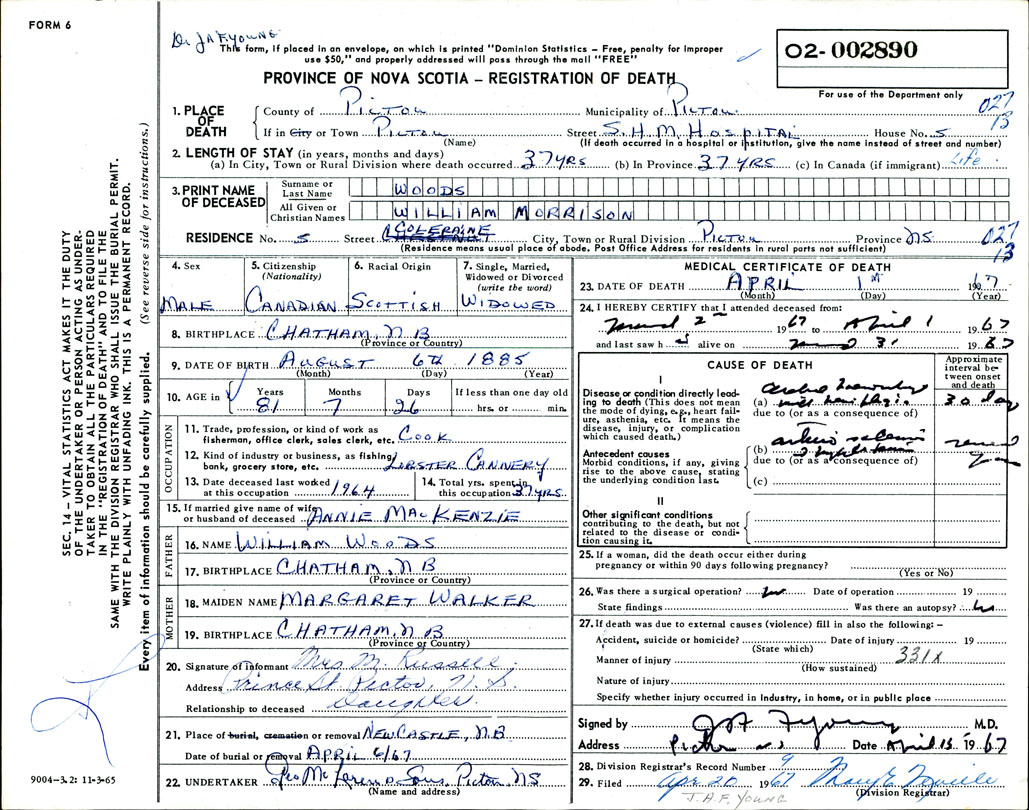 FORM 6
Dr J.A.F. YOUNG
This form, if placed in an envelope, on which is printed "Dominion Statistics – Free, penalty for improper
use $50," and properly addressed will pass through the mail "FREE"
PROVINCE OF NOVA SCOTIA – REGISTRATION OF DEATH
02-002890
For use of the Department only
027
13
1. PLACE OF DEATH
County of PICTOU Municipality of PICTOU
If in City or Town PICTOU Street S.H.M. HOSPITAL House No. 5
(Name) (If death occurred in a hospital or institution, give the name instead of street and number)
2. LENGTH OF STAY (in years, months and days)
(a) In City, Town or Rural Division where death occurred 37 YRS (b) In Province 37 YRS (c) In Canada (if immigrant) Life
3. PRINT NAME OF DECEASED
Surname or Last Name WOODS
All Given or Christian Names WILLIAM MORRISON
RESIDENCE No. 5 Street COLERAINE City, Town or Rural Division PICTOU Province NS
(Residence means usual place of abode. Post Office Address for residents in rural parts not sufficient)
027
13
4. Sex MALE
5. Citizenship (Nationality) CANADIAN
6. Racial Origin SCOTTISH
7. Single, Married, Widowed or Divorced (write the word) WIDOWED
8. BIRTHPLACE CHATHAM, N B
(Province or Country)
9. DATE OF BIRTH AUGUST 6TH 1885
(Month) (Day) (Year)
10. AGE in Years 81 Months 7 Days 26 If less than one day old hrs. or min.
OCCUPATION
11. Trade, profession, or kind of work as fisherman, office clerk, sales clerk, etc. COOK
12. Kind of industry or business, as fishing, bank, grocery store, etc. LOBSTER CANNERY
13. Date deceased last worked at this occupation 1964
14. Total yrs. spent in this occupation 37 YRS.
15. If married give name of wife or husband of deceased ANNIE MACKENZIE
FATHER
16. NAME WILLIAM WOODS
17. BIRTHPLACE CHATHAM, N B
(Province or Country)
MOTHER
18. MAIDEN NAME MARGARET WALKER
19. BIRTHPLACE CHATHAM, N B
(Province or Country)
20. Signature of informant Mrs M. Russell
Address Prince St Pictou, N.S.
Relationship to deceased Daughter
21. Place of burial, cremation or removal NEWCASTLE, N.B
Date of burial or removal APRIL 6/67
22. UNDERTAKER Sons, Pictou, NS
(Name and address)
MEDICAL CERTIFICATE OF DEATH
23. DATE OF DEATH APRIL 1st 1967
(Month) (Day) (Year)
24. I HEREBY CERTIFY that I attended deceased from:
2 1967 to April 1 1967
and last saw h alive on 31 1967
CAUSE OF DEATH
Approximate interval between onset and death
I
Disease or condition directly leading to death (This does not mean the mode of dying, e.g., heart failure, asthenia, etc. It means the disease, injury, or complication which caused death.)
(a) 30 day
due to (or as a consequence of)
Antecedent causes
Morbid conditions, if any, giving rise to the above cause, stating the underlying condition last.
(b)
due to (or as a consequence of)
(c)
II
Other significant conditions
contributing to the death, but not related to the disease or condition causing it.
25. If a woman, did the death occur either during pregnancy or within 90 days following pregnancy?
(Yes or No)
26. Was there a surgical operation? no Date of operation 19
State findings Was there an autopsy? no
27. If death was due to external causes (violence) fill in also the following: –
Accident, suicide or homicide? Date of injury 19
(State which)
Manner of injury 331X
(How sustained)
Nature of injury
Specify whether injury occurred in Industry, in home, or in public place
Signed by JAF Young M.D.
Address Pictou N.S. Date April 15 1967
28. Division Registrar's Record Number 9
29. Filed Apr 20 1967
(Division Registrar)
J.A.F. YOUNG
SEC. 14 – VITAL STATISTICS ACT MAKES IT THE DUTY
OF THE UNDERTAKER OR PERSON ACTING AS UNDER-
TAKER TO OBTAIN ALL THE PARTICULARS REQUIRED
IN THE "REGISTRATION OF DEATH" AND TO FILE THE
SAME WITH THE DIVISION REGISTRAR WHO SHALL ISSUE THE BURIAL PERMIT.
WRITE PLAINLY WITH UNFADING INK. THIS IS A PERMANENT RECORD.
Every item of information should be carefully supplied. (See reverse side for instructions.)
9004–3.2: 11-3-65